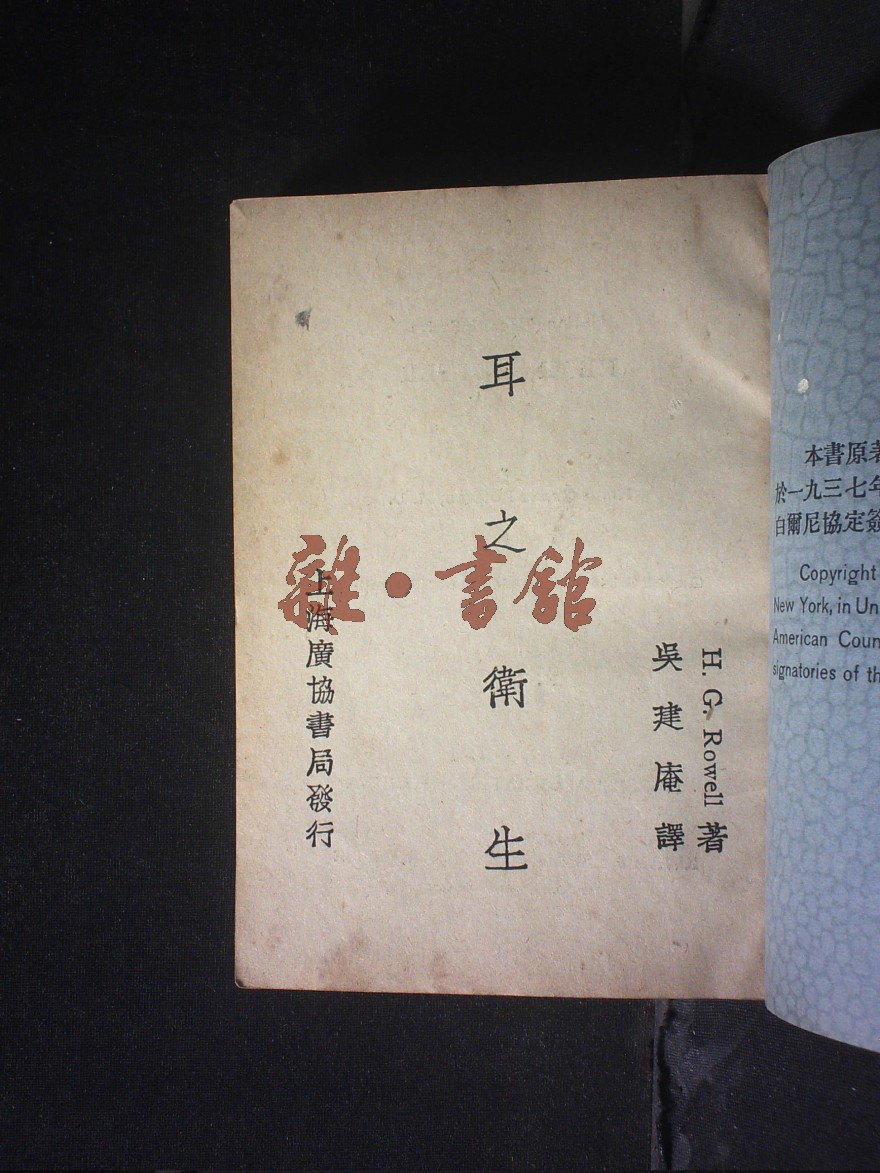 H. G. Rowell 著
吳建庵譯
耳之衛生
上海廣協書局發行
雜·書館
本書原著
於一九三七年
白爾尼協定簽
Copyright
New York, in Un
American Coun
signatories of th